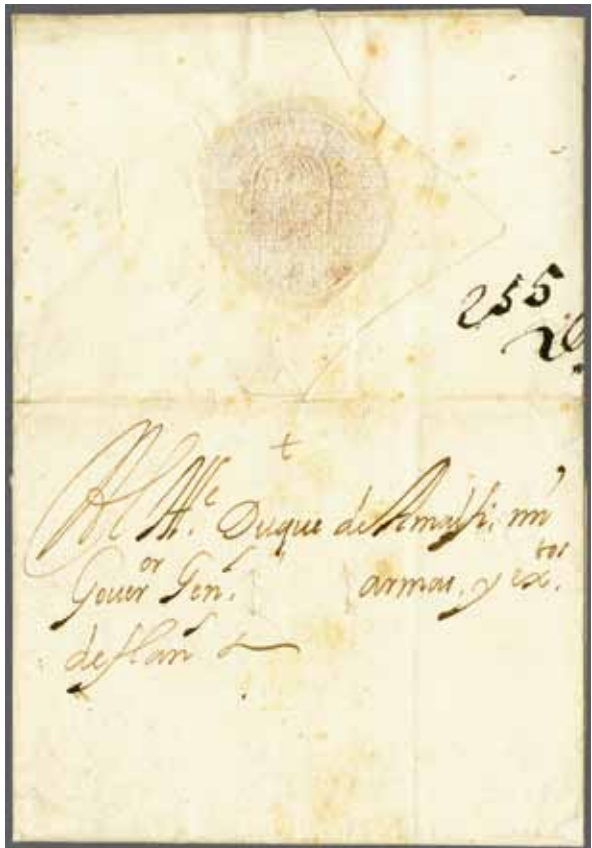 255
+
Al Ill.e Duque de Amalfi, mi
Gouer.or Gen.l armas, y ex.tos
de flan.s